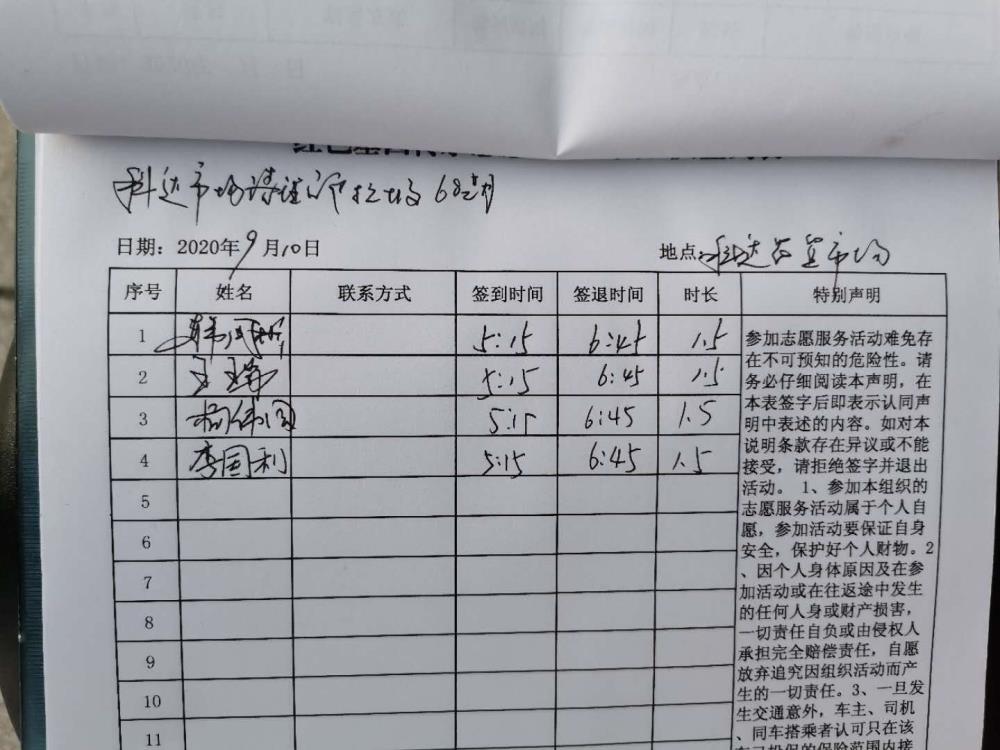 科达市场
日期: 2020年9月10日
地点: 科达 市场
序号 姓名 联系方式 签到时间 签退时间 时长 特别声明
1 5:15 6:45 1.5
2 5:15 6:45 1.5
3 5:15 6:45 1.5
4 李国利 5:15 6:45 1.5
5
6
7
8
9
10
11
参加志愿服务活动难免存
在不可预知的危险性。请
务必仔细阅读本声明，在
本表签字后即表示认同声
明中表述的内容。如对本
说明条款存在异议或不能
接受，请拒绝签字并退出
活动。 1、参加本组织的
志愿服务活动属于个人自
愿，参加活动要保证自身
安全，保护好个人财物。2
、因个人身体原因及在参
加活动或在往返途中发生
的任何人身或财产损害，
一切责任自负或由侵权人
承担完全赔偿责任，自愿
放弃追究因组织活动而产
生的一切责任。3、一旦发
生交通意外，车主、司机
、同车搭乘者认可只在该